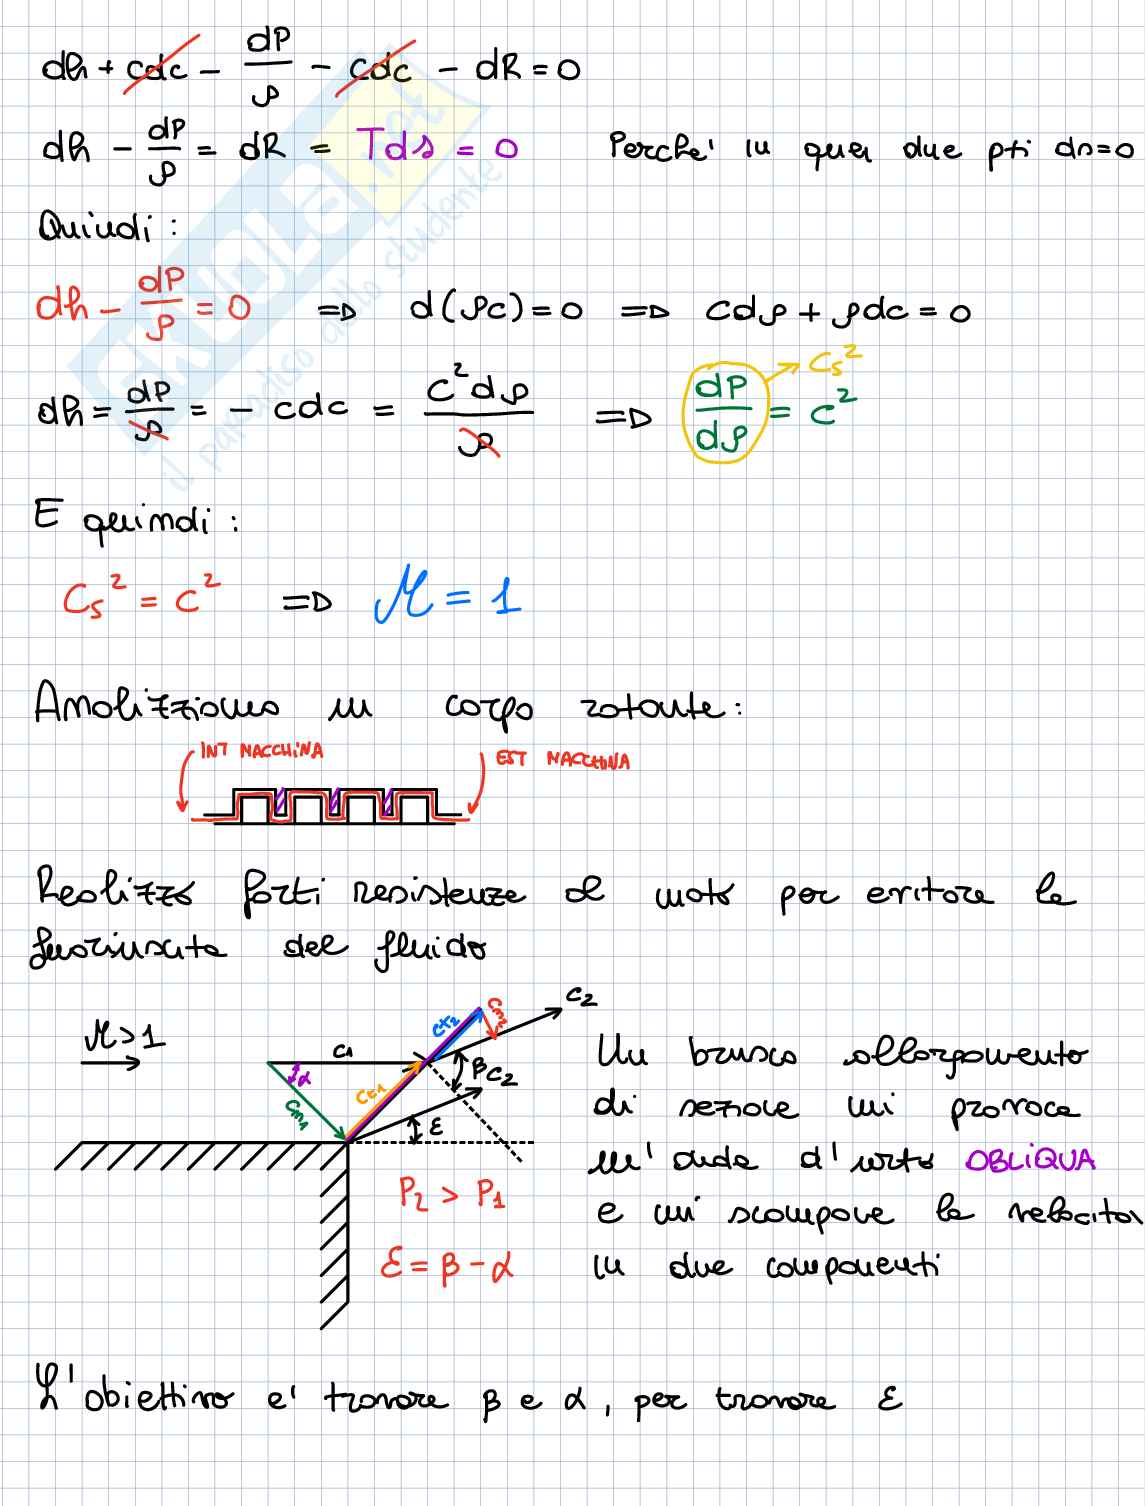 dh + cdc - dP/ρ - cdc - dR = 0
dh - dP/ρ = dR = Tds = 0 Perche' in quei due pti ds=0
Quindi:
dh - dP/ρ = 0 => d(ρc) = 0 => cdρ + ρdc = 0
dh = dP/ρ = - cdc = c²dρ/ρ => dP/dρ = c² → Cs²
E quindi:
Cs² = c² => M = 1
Analizziamo un corpo rotante:
INT MACCHINA EST MACCHINA
Realizzo forti resistenze al moto per evitare la
fuoriuscita del fluido
M>1 C1 α Cm1 Ct1 Ct2 Cm2 C2 β C2 ε
Un brusco allargamento
di sezione mi provoca
un'onda d'urto OBLIQUA
e mi scompone la velocità
in due componenti
P2 > P1
ε = β - α
L'obiettivo e' trovare β e α, per trovare ε
SKUOLA.net
il paradiso dello studente